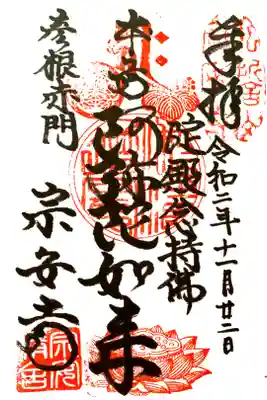 奉拝
令和二年十一月廿二日
淀殿念持佛
本尊 阿弥陀如来
彦根赤門
宗安寺